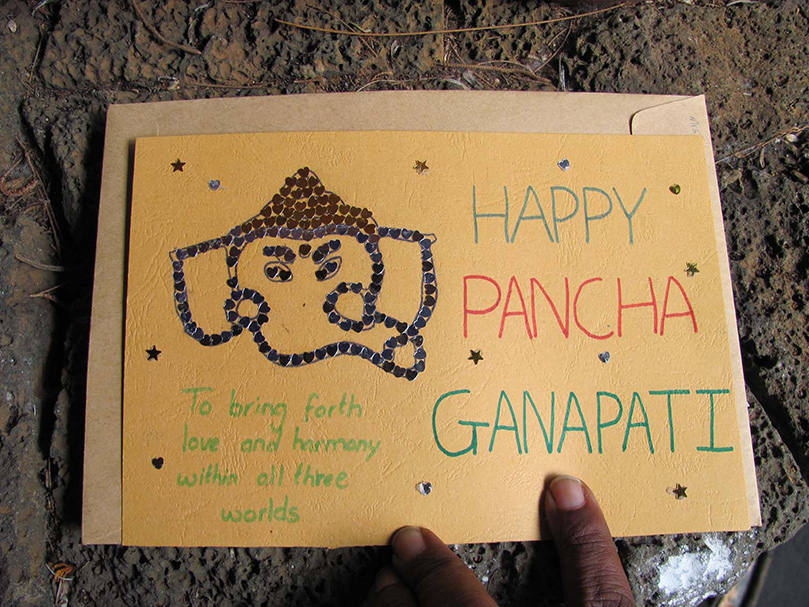 HAPPY
PANCHA
GANAPATI
To bring forth
love and harmony
within all three
worlds